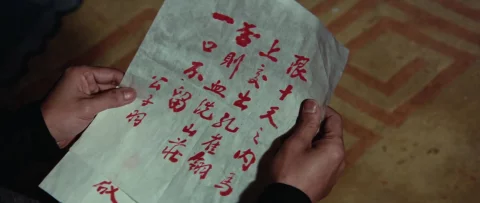 限十天之内馬
上交出孔雀翎
否則血洗山莊
一口不留
公子羽
啟